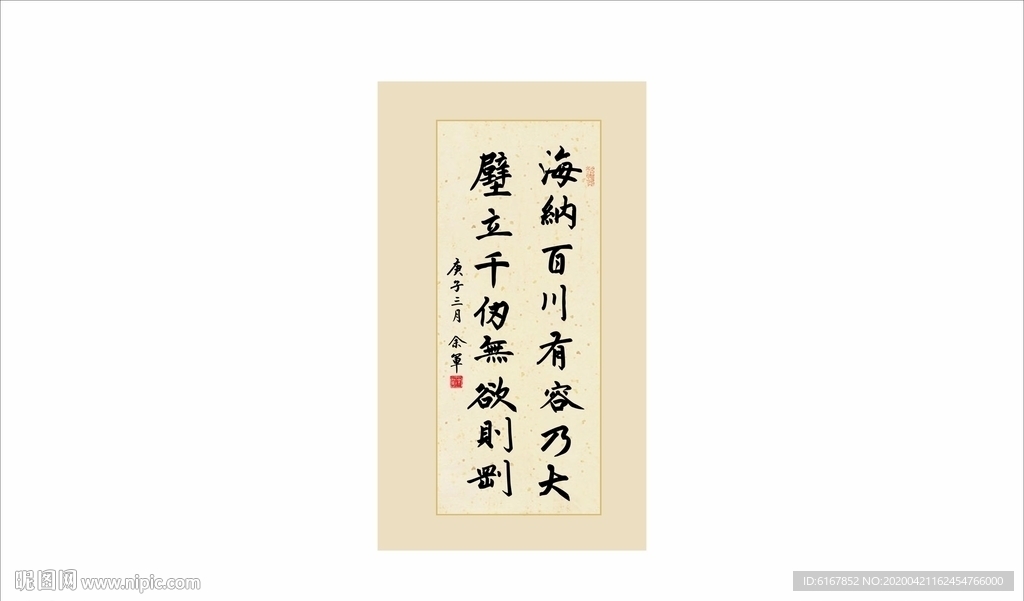 海納百川有容乃大
壁立千仞無欲則剛
庚子三月 余軍
昵图网 www.nipic.com
ID:6167852 NO:20200421162454766000